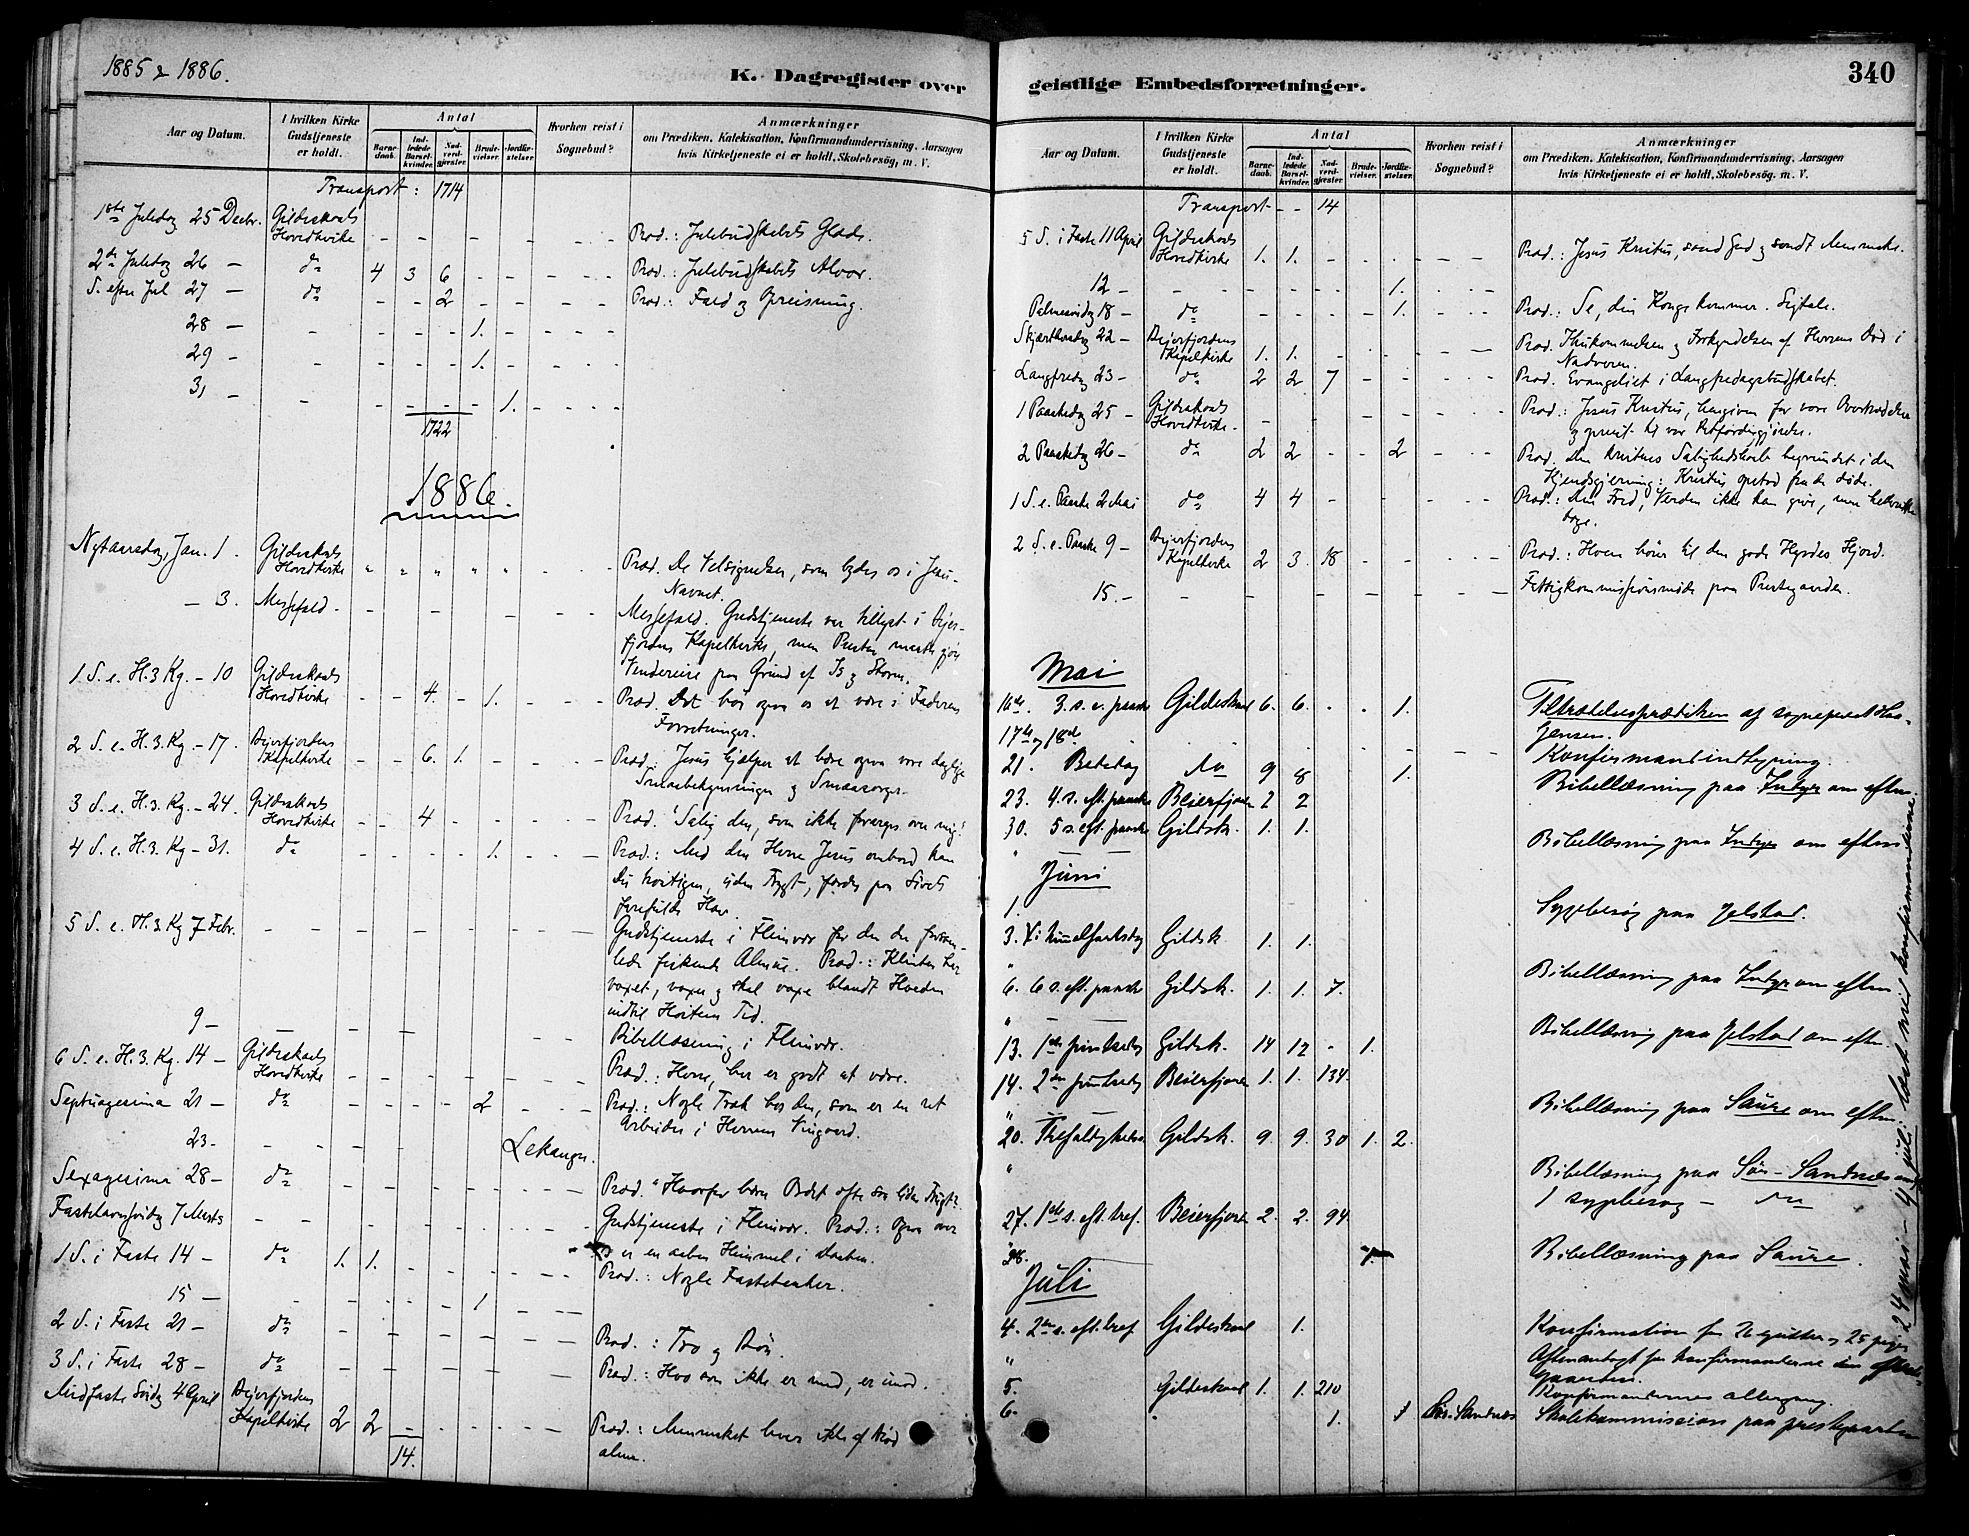 1885 & 1886.
K. Dagregister over
Aar og Datum.
I hvilken Kirke Gudstjeneste er holdt.
Antal
Barne-daab.
Ind-ledede Barsel-kvinder.
Nad-verd-gjester.
Brude-vielser.
Jordfæ-stelser.
Hvorhen reist i Sognebud?
Anmærkninger
om Prædiken, Katekisation, Konfirmandundervisning, Aarsagen
hvis Kirketjeneste ei er holdt, Skolebesög, m. V.
Transport: 1714
1ste Juledag 25 Decbr. Gildeskaals Hovedkirke - - - - - Præd.: Julebudskabets Glæde.
2den Juledag 26 - do 4 3 6 - - - Præd.: Julebudskabets Alvor.
S. efter Jul 27 - do - - 2 - - - Præd.: Fald og Opreisning.
28 - - - - - 1. - -
29 - - - - - 1. - -
31 - - - - - - 1. -
1722
1886.
Nytaarsdag, Jan. 1. Gildeskaals Hovedkirke " " " " " - Præd. De Velsignelser, som bydes os i Jesu
Navnet.
- 3. Messefald. - - - - - Messefald. Gudstjeneste var tillyst i Beier-
fjordens Kapelkirke, men Presten maatte gjøre
Vendereise paa Grund af Is og Storm.
1 S. e. H. 3 Kg. - 10 Gildeskaals Hovedkirke - - 4. - 1. - Præd. Det bør os at være i Faderens
Forretninger.
2 S. e. H. 3. Kg. - 17. Beierfjordens Kapelkirke - - 6. 1. - - Præd.: Jesus hjælper at bære vore daglige
Smaabekymringer og Smaasorger.
3 S. e. H. 3. Kg. - 24. Gildeskaals Hovedkirke - - 4 - - - Præd. "Salig den, som ikke forarges over mig."
4 S. e. H. 3. Kg - 31. do - - - - 1. - Præd.: Med den Herre Jesus ombord kan
du uden Frygt, færdes paa Livets
Hav.
5 S. e. H. 3. Kg 7 Febr. - - - - - - Gudstjeneste i Fleinvær for den der
fiskende Almue. Præd.: Klinten har
voxet, voxer og skal voxe blandt Hveden
indtil Høstens Tid.
9 - - - - - - Bibellæsning i Fleinvær.
6 S. e. H. 3. Kg. 14 - Gildeskaals Hovedkirke - - - - - - Præd.: Herre, her er godt at være.
Septuagesima 21 - do - - - - 2 - Præd.: Nogle Træk hos den, som er en ret
Arbeider i Herrens Vingaard.
23 - - - - Lekanger.
Sexagesima 28 - do - - - - - - Præd. "Hvorfor bærer Ordet ofte saa liden Frugt?
Fastelavnssøndag 7 Marts - - - - - - Gudstjeneste i Fleinvær. Præd.: Oven over
os er en aaben Himmel i Daaben.
1 S. i Faste 14 - do 1. 1. - - - - Præd.: Nogle Fastetanker.
15 - - - - - 1 - -
2 S. i Faste 21 - do - - - - - - Præd.: Tro og Bøn.
3 S. i Faste 28 - do - - - - - - Præd.: Hvo som ikke er med, er imod.
Midfaste Søndag 4 April Beierfjordens Kapelkirke 2 2 - - - - Præd.: Mennesket lever ikke af Brød
alene.
14.
geistlige Embedsforretninger.
340
Aar og Datum.
I hvilken Kirke Gudstjeneste er holdt.
Antal
Barne-daab.
Ind-ledede Barsel-kvinder.
Nad-verd-gjester.
Brude-vielser.
Jordfæ-stelser.
Hvorhen reist i Sognebud?
Anmærkninger
om Prædiken, Katekisation, Konfirmandundervisning, Aarsagen
hvis Kirketjeneste ei er holdt, Skolebesög, m. V.
Transport - - 14
5 S. i Faste 11 April Gildeskaals Hovedkirke 1. 1. - - - - Præd.: Jesus Kristus, sand Gud og sandt Menneske.
12 - - - - - - 1. -
Palmesøndag 18 - do - - - - 1. - Præd.: Se, din Konge kommer. Ligtale.
Skjærthorsdag 22 - Beierfjordens Kapelkirke 1. 1. - - - - Præd. Ihukommelsen og Forkyndelsen af Herrens Død i
Nadveren.
Langfredag 23 - do 2 2 7 - - - Præd. Evangeliet i Langfredagsbudskabet.
1 Paaskedag 25 - Gildeskaals Hovedkirke. - - - - - - Præd.: Jesus Kristus, hengiven for vore Overtrædelser
og opreist til vor Retfærdiggjørelse.
2 Paaskedag 26 - do 2 2 - - 2 - Præd. Den kristnes Salighedshaab begrundet i den
Kjendsgjerning: Kristus opstod fra de døde.
1 S. e. Paaske 2 Mai do 4 4 - - - - Præd.: Den Fred, Verden ikke kan give, men heller ikke
tage.
2 S. e. Paaske 9 - Beierfjordens Kapelkirke 2 3. 18 - - - Præd.: Hvem hører til den gode Hyrdes Hjord.
15. - - - - - - - Fattigkommissionsmøde paa Prestegaarden.
Mai
16de. 3. s. e. paaske Gildeskaal 6. 6. - - 1. Tiltrædelsesprædiken af sogneprest
Jensen.
17de og 18de Konfirmandindtegning.
21. Bededag do 9 8 1. Bibellæsning paa Indyr om eften.
23. 4. s. eft. paaske Beierfjoren 2 2
30. 5 s. eft. paaske Gildsk. 1. 1.
" Bibellæsning paa Indyr om eften
Juni
1. Sygebesøg paa Jelstad.
3. Kr. himmelfartsdag Gildsk. 1. 1.
" Bibellæsning paa Indyr om eften.
6. 6 s. eft. paaske Gildsk. 1. 1. 7.
" Bibellæsning paa Jelstad om eften.
13. 1ste pintsedag Gildsk. 14 12 - 1.
14. 2den pintsedag Beierfjoren 1. 1. 134.
" Bibellæsning paa Saura om eften
20. Trefoldigheds. Gildsk. 9. 9. 30 1. 2.
" Bibellæsning paa Sør-Sandnæs om
1 sygebesøg - do
27. 1ste s. eft. tref. Beierfjoren 2. 2. 94.
"28. 1. Bibellæsning paa Saura.
Juli
4. 2den s. eft. tref Gildeskaal 1. Konfirmation for 26 gutter og 25 piger
" Aftensbøn for konfirmanderne
5. Gildeskaal 1. 1. 210 Konfirmandernes altergang.
6. 1. 1 Sør-Sandnæs Skolekommission paa prestegaarden
24 mai - 4 juli: læst med konfirmanderne